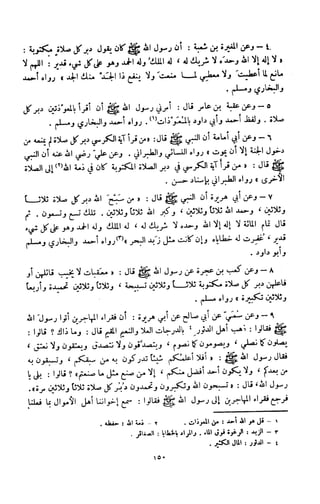 ٤ – وعن المغيرة بن شعبة : أن رسول الله ﷺ كان يقول دبر كل صلاة مكتوبة :
« لا إله إلا الله وحده لا شريك له ، له الملك وله الحمد وهو على كل شيء قدير : اللهم لا
مانع لما أعطيت ولا معطي لما منعت ولا ينفع ذا الجد منك الجد » رواه أحمد
والبخاري ومسلم .
٥ – وعن عقبة بن عامر قال : أمرني رسول الله ﷺ أن أقرأ بالمعوذتين دبر كل
صلاة . ولفظ أحمد وأبي داود بالمعوذات (١) . رواه أحمد والبخاري ومسلم .
٦ – وعن أبي أمامة أن النبي ﷺ قال : «من قرأ آية الكرسي دبر كل صلاة لم يمنعه من
دخول الجنة إلا أن يموت » رواه النسائي والطبراني . وعن علي رضي الله عنه أن النبي
ﷺ قال : « من قرأ آية الكرسي في دبر الصلاة المكتوبة كان في ذمة الله (٢) إلى الصلاة
الأخرى » رواه الطبراني بإسناد حسن .
٧ – وعن أبي هريرة أن النبي ﷺ قال : « من سبح الله دبر كل صلاة ثلاثا
وثلاثين ، وحمد الله ثلاثا وثلاثين ، وكبر الله ثلاثا وثلاثين . تلك تسع وتسعون . ثم
قال تمام المائة لا إله إلا الله وحده لا شريك له ، له الملك وله الحمد وهو على كل شيء
قدير ، غفرت له خطاياه وإن كانت مثل زبد البحر » (٣) رواه أحمد والبخاري ومسلم
وأبو داود .
٨ – وعن كعب بن عجرة عن رسول الله ﷺ قال : « معقبات لا يخيب قائلهن أو
فاعلهن دبر كل صلاة مكتوبة ثلاثا وثلاثين تسبيحة ، وثلاثا وثلاثين تحميدة وأربعا
وثلاثين تكبيرة » رواه مسلم .
٩ – وعن سمي عن أبي صالح عن أبي هريرة : أن فقراء المهاجرين أتوا رسول الله
ﷺ فقالوا : ذهب أهل الدثور ٤ بالدرجات العلا والنعيم المقيم قال : وما ذاك ؟ قالوا :
يصلون كما نصلي ، ويصومون كما نصوم ، ويتصدقون ولا نتصدق ويعتقون ولا نعتق .
فقال رسول الله ﷺ : « أفلا أعلمكم شيئا تدركون به من سبقكم ، وتسبقون به
من بعدكم ، ولا يكون أحد أفضل منكم ، إلا من صنع مثل ما صنعتم » ؟ قالوا : بلى يا
رسول الله ، قال : « تسبحون الله وتكبرون وتحمدون دبر كل صلاة ثلاثا وثلاثين مرة» .
فرجع فقراء المهاجرين إلى رسول الله ﷺ فقالوا : سمع إخواننا أهل الأموال بما فعلنا
١ – قل هو الله أحد : من المعوذات .
٢ – ذمة الله : حفظه .
٣ – الزبد : الرغوة فوق الماء . والمراد بالخطايا : الصغائر .
٤ – الدثور : المال الكثير .
١٥٠